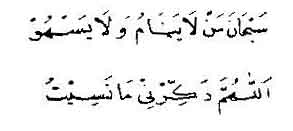 سُبْحَانَ مَنْ لَا يَنَامُ وَلَا يَسْهُوْ
اَللّٰهُمَّ ذَكِّرْنِيْ مَا نَسِيْتُ